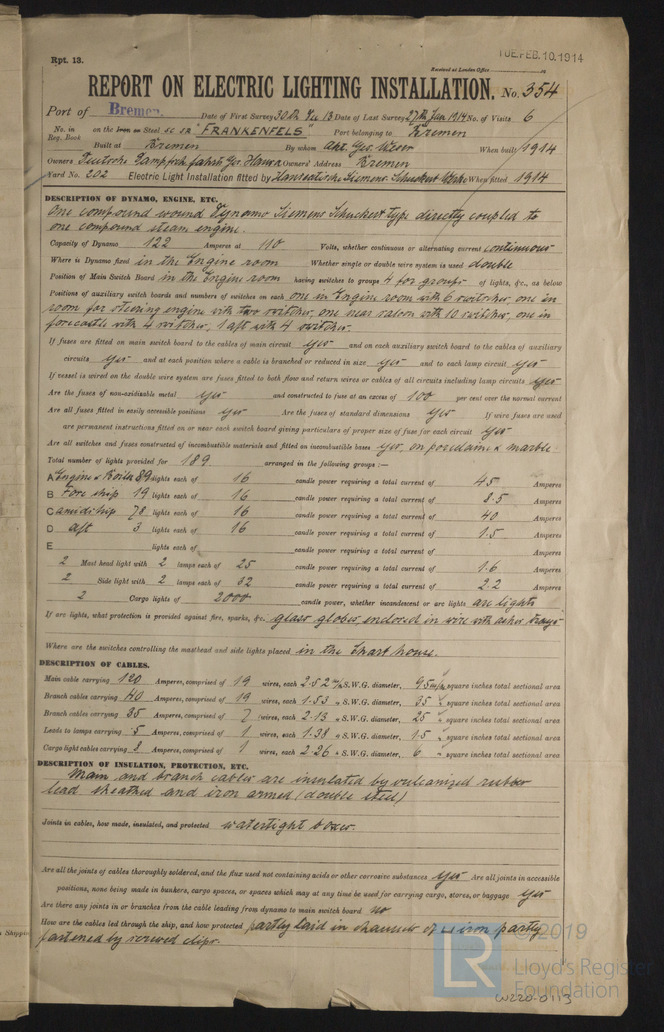 TUE. FEB. 10. 1914
Rpt. 13.
Received at London Office
REPORT ON ELECTRIC LIGHTING INSTALLATION. No. 354
Port of Bremen. Date of First Survey 30th Dec 13 Date of Last Survey 27th Jan 1914 No. of Visits 6
No. in Reg. Book on the Iron or Steel sc. sr "FRANKENFELS" Port belonging to Bremen
Built at Bremen By whom Akt. Ges. Weser When built 1914
Owners Deutsche Dampfsch. fahrts Ges. Hansa Owners' Address Bremen
Yard No. 202 Electric Light Installation fitted by Hanseatische Siemens-Schuckert Werke When fitted 1914
DESCRIPTION OF DYNAMO, ENGINE, ETC.
One compound wound Dynamo Siemens Schuckert type directly coupled to
one compound steam engine.
Capacity of Dynamo 122 Amperes at 110 Volts, whether continuous or alternating current continuous
Where is Dynamo fixed in the Engine room Whether single or double wire system is used double
Position of Main Switch Board in the Engine room having switches to groups 4 for groups of lights, &c., as below
Positions of auxiliary switch boards and numbers of switches on each one in Engine room with 6 switches, one in
room for steering engine with two switches, one near saloon with 10 switches, one in
forecastle with 4 switches, 1 aft with 4 switches.
If fuses are fitted on main switch board to the cables of main circuit yes and on each auxiliary switch board to the cables of auxiliary
circuits yes and at each position where a cable is branched or reduced in size yes and to each lamp circuit yes
If vessel is wired on the double wire system are fuses fitted to both flow and return wires or cables of all circuits including lamp circuits yes
Are the fuses of non-oxidizable metal yes and constructed to fuse at an excess of 100 per cent over the normal current
Are all fuses fitted in easily accessible positions yes Are the fuses of standard dimensions yes If wire fuses are used
are permanent instructions fitted on or near each switch board giving particulars of proper size of fuse for each circuit yes
Are all switches and fuses constructed of incombustible materials and fitted on incombustible bases yes, on porcelain & marble
Total number of lights provided for 189 arranged in the following groups :—
A Engine & Boiler 89 lights each of 16 candle power requiring a total current of 45 Amperes
B Fore ship 19 lights each of 16 candle power requiring a total current of 8.5 Amperes
C amidship 78 lights each of 16 candle power requiring a total current of 40 Amperes
D aft 3 lights each of 16 candle power requiring a total current of 1.5 Amperes
E lights each of candle power requiring a total current of Amperes
2 Mast head light with 2 lamps each of 25 candle power requiring a total current of 1.6 Amperes
2 Side light with 2 lamps each of 32 candle power requiring a total current of 2.2 Amperes
2 Cargo lights of 2000 candle power, whether incandescent or arc lights arc lights
If arc lights, what protection is provided against fire, sparks, &c. glass globes enclosed in wire with ashes trays
Where are the switches controlling the masthead and side lights placed in the Chart house.
DESCRIPTION OF CABLES.
Main cable carrying 120 Amperes, comprised of 19 wires, each 2.52 m/m S.W.G. diameter, 95 square inches total sectional area
Branch cables carrying 40 Amperes, comprised of 19 wires, each 1.53 " S.W.G. diameter, 35 " square inches total sectional area
Branch cables carrying 35 Amperes, comprised of 7 wires, each 2.13 " S.W.G. diameter, 25 " square inches total sectional area
Leads to lamps carrying 5 Amperes, comprised of 1 wires, each 1.38 " S.W.G. diameter, 1.5 " square inches total sectional area
Cargo light cables carrying 8 Amperes, comprised of 1 wires, each 2.26 " S.W.G. diameter, 6 " square inches total sectional area
DESCRIPTION OF INSULATION, PROTECTION, ETC.
Main and branch cables are insulated by vulcanized rubber
lead sheathed and iron armed (double steel)
Joints in cables, how made, insulated, and protected watertight boxes.
Are all the joints of cables thoroughly soldered, and the flux used not containing acids or other corrosive substances yes Are all joints in accessible
positions, none being made in bunkers, cargo spaces, or spaces which may at any time be used for carrying cargo, stores, or baggage yes
Are there any joints in or branches from the cable leading from dynamo to main switch board no
How are the cables led through the ship, and how protected partly laid in channels of iron partly
fastened by screwed clips.
© 2019
LR
Lloyd's Register
Foundation
W220-0113